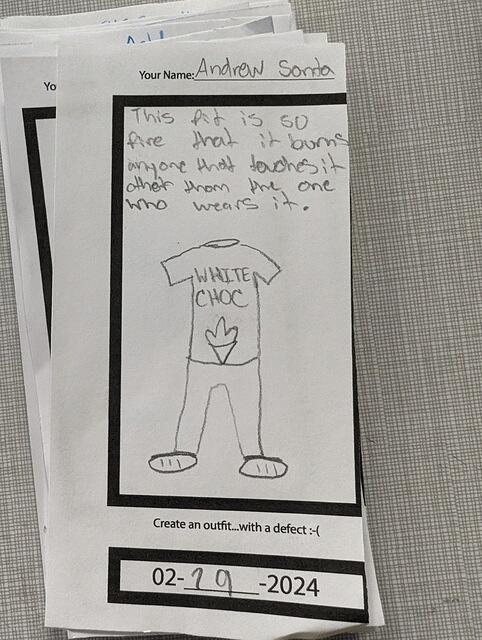 Your Name: Andrew Santa
Yo
This fit is so
fire that it burns
anyone that touches it
other than the one
who wears it.
WHITE
CHOC
Create an outfit...with a defect :-(
02-29-2024